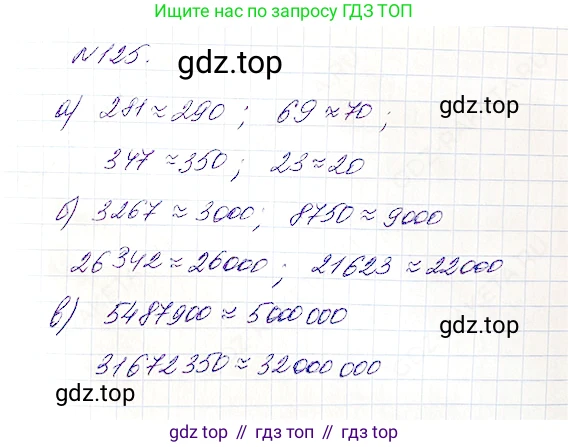 Ищите нас по запросу ГДЗ ТОП
№125.
gdz.top
а) 281≈290; 69≈70;
gdz.top
347≈350; 23≈20
б) 3267≈3000; 8750≈9000
26342≈26000; 21623≈22000
в) 5487900≈5000000
gdz.top
31672350≈32000000
gdz.top
gdz.top // гдз.топ // gdz.top // гдз.топ